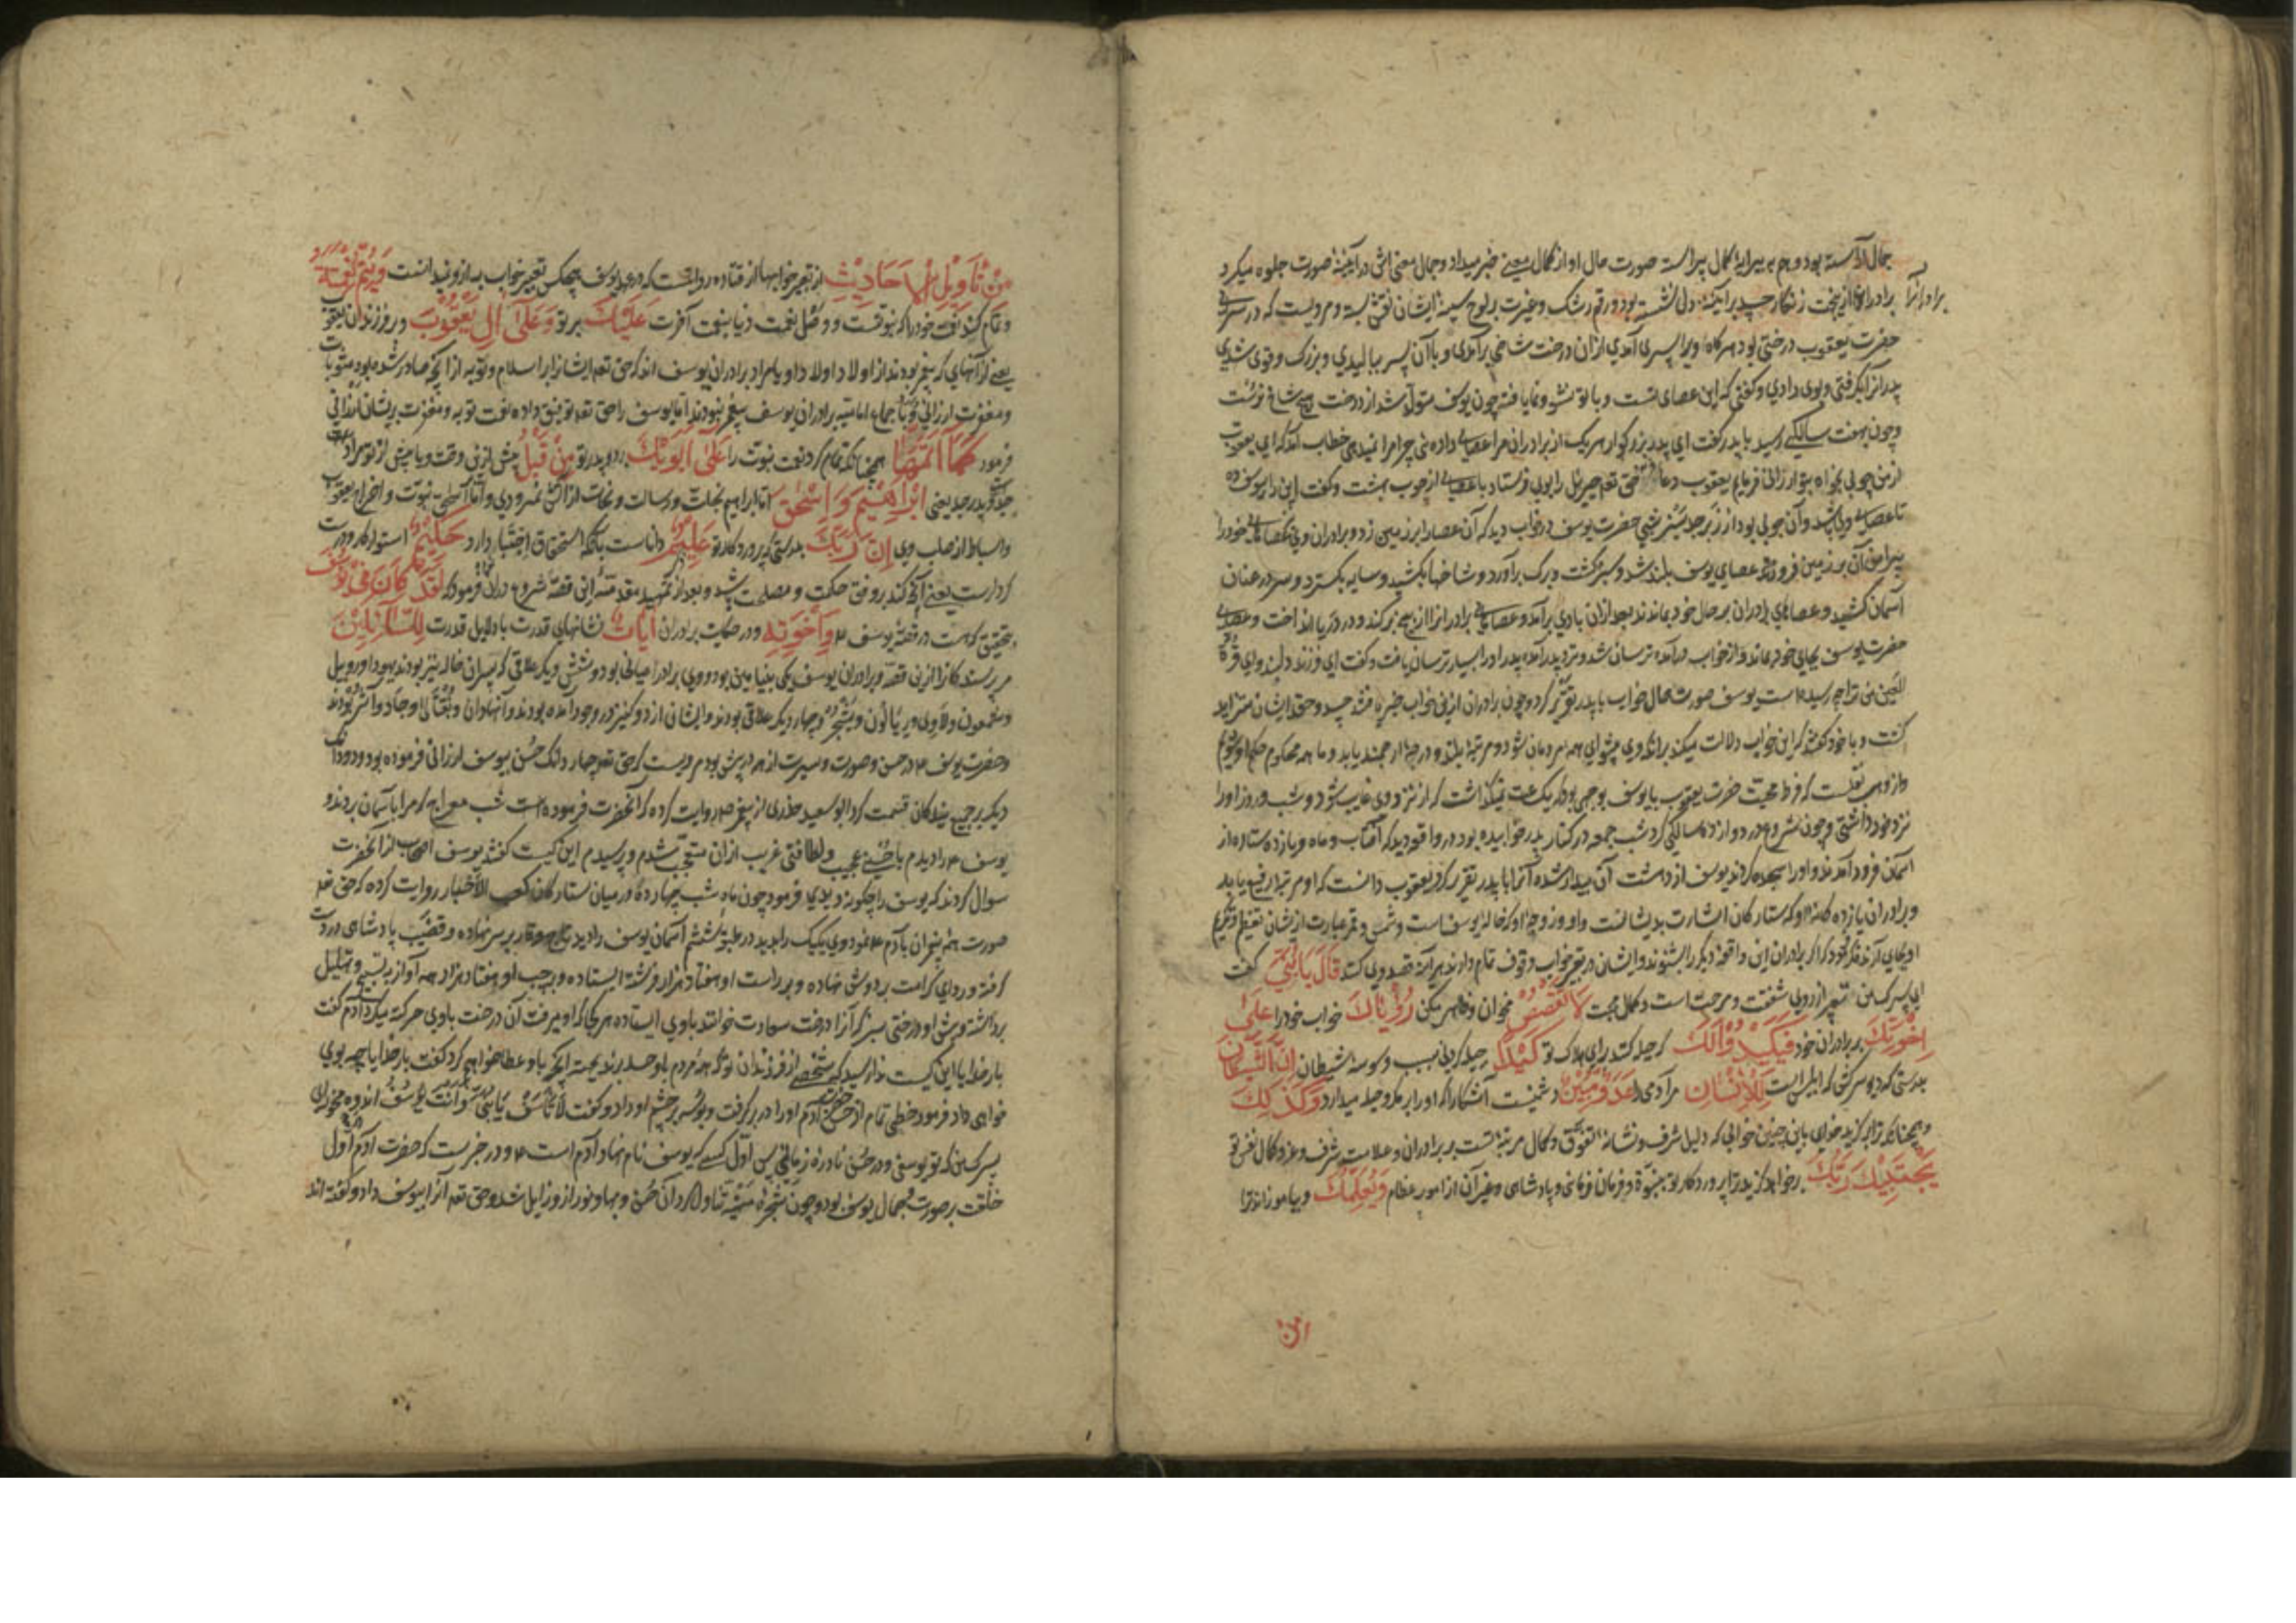 جمال آراسته بود و هم به پیرایهٔ کمال پیراسته صورت حال او از کمال معنی خبر میداد و جمال معنی اش در آینهٔ صورت جلوه میکرد
برادرانرا
برادران از نخت زنگار حسد بر آینهٔ دل نشسته بود و رقم رشک و غیرت بر لوح سینهٔ ایشان نقش بسته و مرویست که در سرای
حضرت یعقوب درختی بود هرگاه ویرا پسری آمدی ازان درخت شاخی برآمدی و با آن پسر ببالیدی و بزرگ و قوی شدی
پدر آنرا بگرفتی و بوی دادی و گفتی که این عصای تست و با تو نشو و نما یافته چون یوسف متولد شد از درخت هیچ شاخ نرست
و چون بهفت سالگی رسید با پدر گفت ای پدر بزرگوار هر یک از برادران مرا عصای داده ئی چرا مرا نمیدهی خطاب آمد که ای یعقوب
از من چوبی بخواه بتو ارزانی فرمایم یعقوب دعا حق تعه جبرئیل را بوی فرستاد با عصای از چوب بهشت و گفت این را بیوسف ده
تا عصای وی باشد و آن چوبی بود از زبرجد سبز شبی حضرت یوسف در خواب دید که آن عصا را بر زمین زد و برادران وی عصاهای خود را
پیرامن آن بر زمین فرو زدند عصای یوسف بلند شد و سبز گشت و برگ برآورد و شاخها بکشید و سایه بگسترد و سر در عنان
آسمان کشید و عصاهای برادران بر حال خود بماندند بعد ازان بادی برآمد و عصاهای برادرانرا از بیخ برکند و در دریا انداخت و عصای
حضرت یوسف بجای خود بماند و از خواب درآمد ترسان شد و نزد پدر آمد پدر او را بسیار ترسان یافت و گفت ای فرزند دلبند و ای قرة
العین من ترا چه رسیده است یوسف صورت حال خواب با پدر تقریر کرد و چون برادران ازین خواب خبر یافتند حسد و حقد ایشان متزاید
گشت و با خود گفتند که این خواب دلالت میکند برانکه وی پیشوای همه مردمان شود و مرتبهٔ بلند و درجهٔ ارجمند یابد و ما همه محکوم حکم او شویم
و از وهب نقلست که فرط محبت حضرت یعقوب با یوسف بوجهی بود که یک ساعت نمیگذاشت که از نزد وی غایب شود و شب و روز او را
نزد خود داشتی و چون شروع در دوازده سالگی کرد شب جمعه در کنار پدر خوابیده بود در واقعه دید که آفتاب و ماه و یازده ستاره از
آسمان فرود آمدند و او را سجده کردند یوسف از دهشت آن بیدار شده آنرا با پدر تقریر کرد یعقوب دانست که او مرتبهٔ رفیع یابد
و برادران یازده گانهٔ او که ستارگان اشارت بدیشانست و او و زوجهٔ او که خالهٔ یوسف است و شمس و قمر عبارت ازیشان تعظیم و تکریم
او بجای آرند فکر نمود که اگر برادران این واقعه دیگر را بشنوند و ایشان در تعبیر خواب وقوف تمام دارند هرآینه قصد وی کنند قَالَ یَا بُنَیَّ گفت
ای پسرک من تصغیر از روی شفقت و مرحمت است و کمال محبت لَا تَقْصُصْ مخوان و ظاهر مکن رُؤْیَاكَ خواب خود را عَلَی
اِخْوَتِكَ بر برادران خود فَیَكِیدُوا لَكَ که حیله کنند برای هلاک تو كَیْدًا حیله کردنی بسبب وسوسهٔ شیطان اِنَّ الشَّیْطَانَ
بدرستی که دیو سرکش که ابلیس است لِلْاِنْسَانِ مر آدمی را عَدُوٌّ مُبِینٌ دشمنیست آشکارا که او را بر مکر و حیله میدارد وَكَذٰلِكَ
و همچنانکه ترا برگزید خدای باین چنین خوابی که دلیل شرف و نشانهٔ تفوق و کمال مرتبهٔ تست بر برادران و علامت شرف و عز و کمال نفس تو
یَجْتَبِیكَ رَبُّكَ برخواهد گزید ترا پروردگار تو بنبوة و فرمان فرمائی و پادشاهی و غیر آن از امور عظام وَیُعَلِّمُكَ و بیاموزاند ترا
من
مِنْ تَأْوِیلِ الْاَحَادِیثِ از تعبیر خوابها از قتاده روایتست که در عهد یوسف هیچکس تعبیر خواب به ازو نمیدانست وَیُتِمُّ نِعْمَتَهُ
و تمام کند نعمت خود را که نبوتست و وصل نعمت دنیا بنعمت آخرت عَلَیْكَ بر تو وَعَلٰی اٰلِ یَعْقُوبَ و بر فرزندان یعقوب
یعنی از آنهای که پیغمبر بودند از اولاد اولاد او یا مراد برادران یوسف اند که حق تعه ایشانرا بر اسلام و توبه از آنچه صادر شده بود مثوبات
و مغفرت ارزانی فرمود باجماع امامیه برادران یوسف پیغمبر نبودند اما یوسف را حق تعه توفیق داده بعت توبه و مغفرت بریشان ارزانی
فرمود كَمَا اَتَمَّهَا همچنانکه تمام کرد نعمت نبوت را عَلٰی اَبَوَیْكَ بر دو پدر تو مِنْ قَبْلُ پیش ازین وقت و یا پیش از تو مراد
جد و پدر جد یعنی اِبْرَاهِیمَ وَاِسْحٰقَ اما ابراهیم بخلت و رسالت و نجات از آتش نمرودی و اما اسحق بنبوت و اخراج یعقوب
و اسباط از صلب وی اِنَّ رَبَّكَ بدرستی که پروردگار تو عَلِیمٌ داناست بآنکه استحقاق اجتبا دارد حَكِیمٌ استوار کار و درست
کردارست یعنی آنچه کند بر وفق حکمت و مصلحت باشد و بعد از تمهید مقدمهٔ این قصه شروع دران فرموده که لَقَدْ كَانَ فِی یُوسُفَ
بتحقیق که هست در قصهٔ یوسف ع وَاِخْوَتِهِ و در حکایت برادران اٰیَاتٌ نشانهای قدرت یا دلایل قدرت لِلسَّائِلِینَ
مر پرسندگانرا ازین قصه و برادران یوسف یکی بنیامین بود و وی برادر اعیانی بود و شش دیگر علاتی که پسران خاله نیز بودند یهودا و روبیل
و شمعون و لاوی و ریالون و یشجر و چهار دیگر علاتی بودند و ایشان از دو کنیز در وجود آمده بودند و آنها دان و نفتالی و جاد و آشر بودند
و حضرت یوسف ع در حسن و صورت و سیرت از همه در پیش بود مرویست که حق تعه چهار دانگ حسن بیوسف ارزانی فرموده بود و دو دانگ
دیگر بر جمیع بندگان قسمت کرد ابو سعید خدری از پیغمبر ص روایت کرده که آنحضرت فرموده است شب معراج که مرا بآسمان بردند
یوسف ع را دیدم با حسنی عجیب و لطافتی غریب ازان متعجب شدم و پرسیدم این کیست گفتند یوسف اصحاب از آنحضرت
سوال کردند که یوسف را چگونه دیدی فرمود چون ماه شب چهارده در میان ستارگان کعب الاخبار روایت کرده که حق تعه
صورت همه پیغمبران بآدم ع نمود وی یکیک را بدید در طبقهٔ ششم آسمان یوسف را دید تاج وقار بر سر نهاده و قضیب پادشاهی در دست
گرفته و ردای کرامت بر دوش نهاده و بر راست او هفتاد هزار فرشته ایستاده و بر چپ او هفتاد هزار همه آواز به تسبیح و تهلیل
برداشته و پیش او درختی سبز که آنرا درخت سعادت خوانند باوی ایستاده هر کجا که او میرفت آن درخت باوی حرکت میکرد آدم گفت
بار خدایا این کیست ندا رسید که شخصی از فرزندان تو که همه مردم باو حسد برند بجهت آنچه باو عطا خواهم کرد گفت بار خدایا چه بوی
خواهی داد فرمود حظی تمام از حسن آدم او را در بر گرفت و بوسه بر چشم او داد و گفت لَا تَأَسَّفْ یَا بُنَیَّ وَاَنْتَ یُوسُفُ اندوه مخور ای
پسرک من که تو یوسفی و در حسن نادرهٔ زمانی پس اول کسی که یوسف نام نهاد آدم است ع و در خبرست که حضرت آدم را در اول
خلقت بر صورت و جمال یوسف بود و چون شجرهٔ منهیه تناول کرد آن حسن و بها و نور ازو زایل شد و حق تعه آنرا بیوسف داد و گفته اند